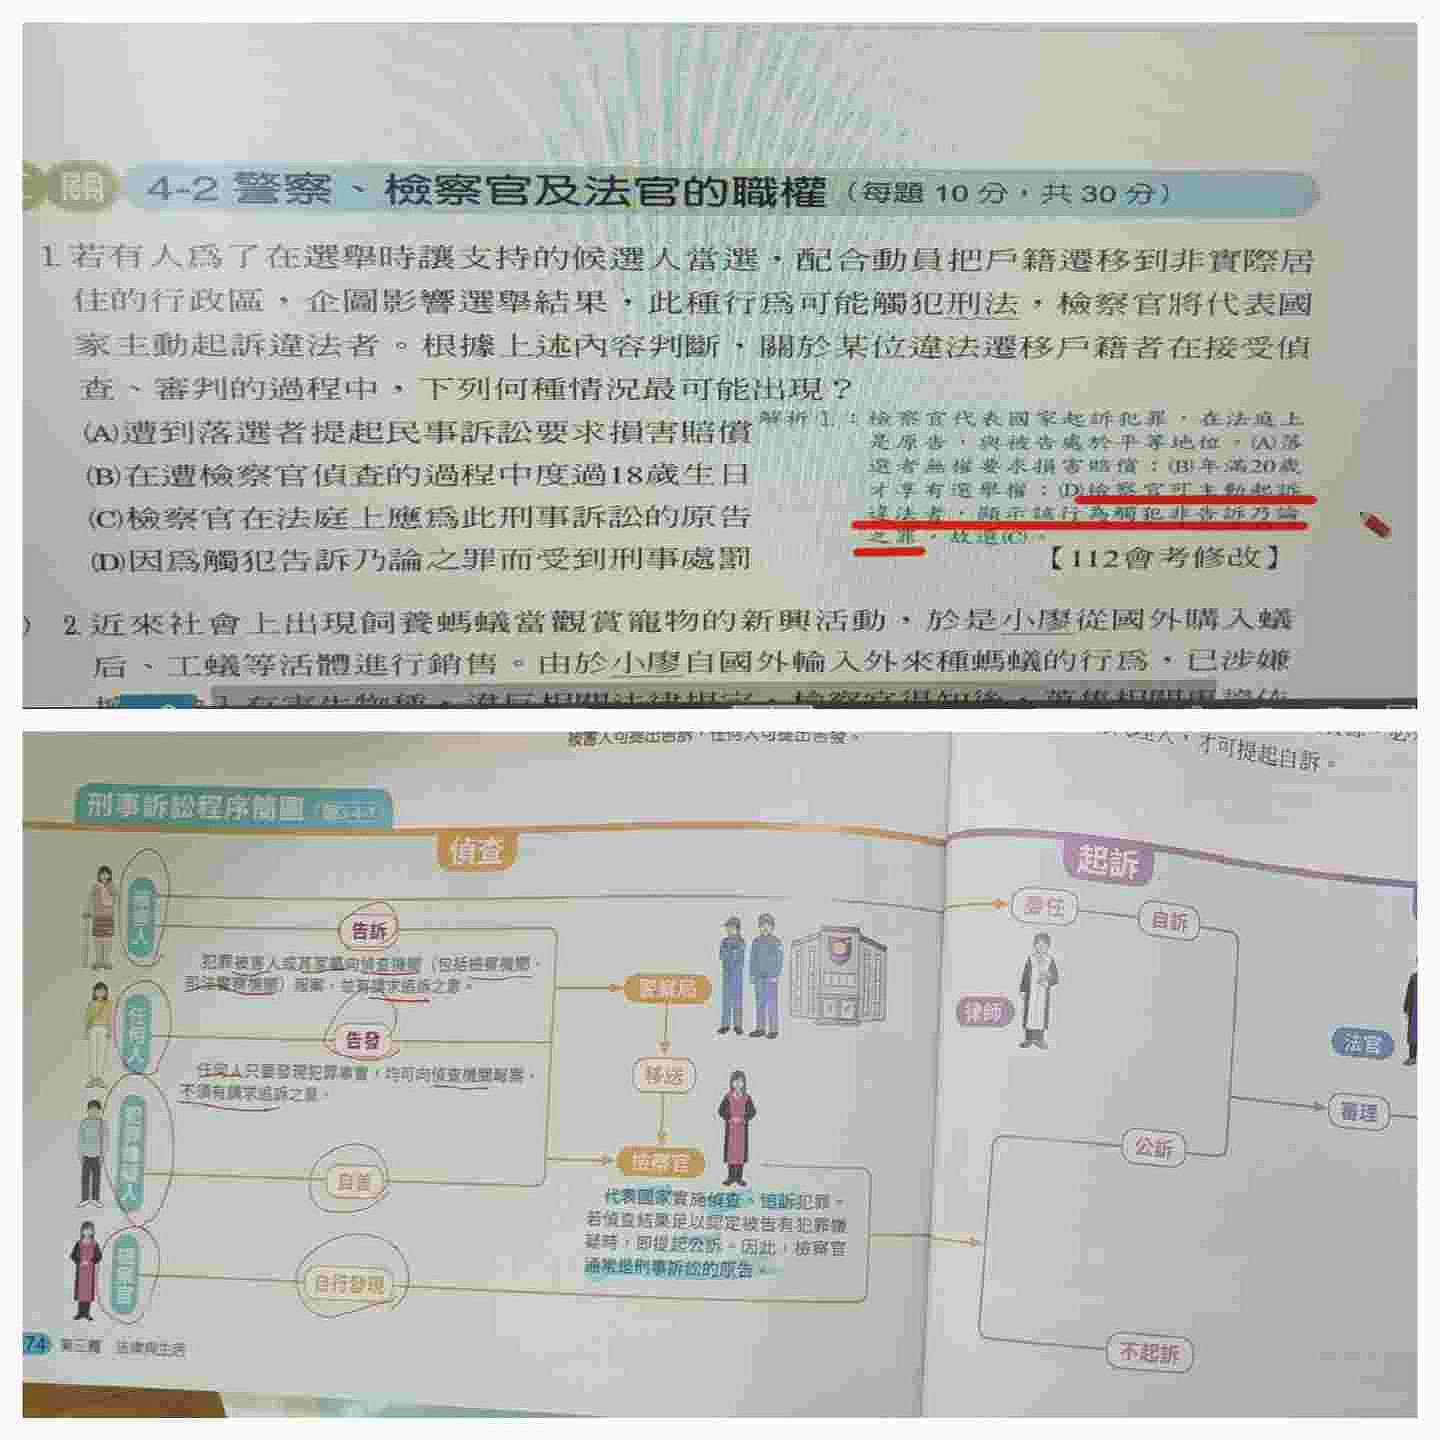 關 4-2 警察、檢察官及法官的職權(每題 10 分,共 30 分)
1. 若有人為了在選舉時讓支持的候選人當選,配合動員把戶籍遷移到非實際居
住的行政區,企圖影響選舉結果,此種行為可能觸犯刑法,檢察官將代表國
家主動起訴違法者。根據上述內容判斷,關於某位違法遷移戶籍者在接受偵
查、審判的過程中,下列何種情況最可能出現?
(A)遭到落選者提起民事訴訟要求損害賠償
(B)在遭檢察官偵查的過程中度過18歲生日
(C)檢察官在法庭上應為此刑事訴訟的原告
(D)因為觸犯告訴乃論之罪而受到刑事處罰
解析 1.:檢察官代表國家起訴犯罪,在法庭上
是原告,與被告處於平等地位。(A)落
選者無權要求損害賠償;(B)年滿20歲
才享有選舉權;(D)檢察官可主動起訴
違法者,顯示該行為觸犯非告訴乃論
之罪,故選(C)。
【112會考修改】
) 2. 近來社會上出現飼養螞蟻當觀賞寵物的新興活動,於是小廖從國外購入蟻
后、工蟻等活體進行銷售。由於小廖自國外輸入外來種螞蟻的行為,已涉嫌
被害人可提出告訴,任何人可提出告發。
才可提起自訴。
刑事訴訟程序簡圖
偵查
被害人
告訴
犯罪被害人或其家屬向偵查機關(包括檢察機關、
司法警察機關)報案,並有請求追訴之意。
任何人
告發
任何人只要發現犯罪事實,均可向偵查機關報案,
不須有請求追訴之意。
犯罪嫌疑人
自首
檢察官
自行發現
警察局
移送
檢察官
代表國家實施偵查、追訴犯罪。
若偵查結果足以認定被告有犯罪嫌
疑時,即提起公訴。因此,檢察官
通常是刑事訴訟的原告。
74 第三篇 法律與生活
起訴
委任
自訴
律師
法官
審理
公訴
不起訴